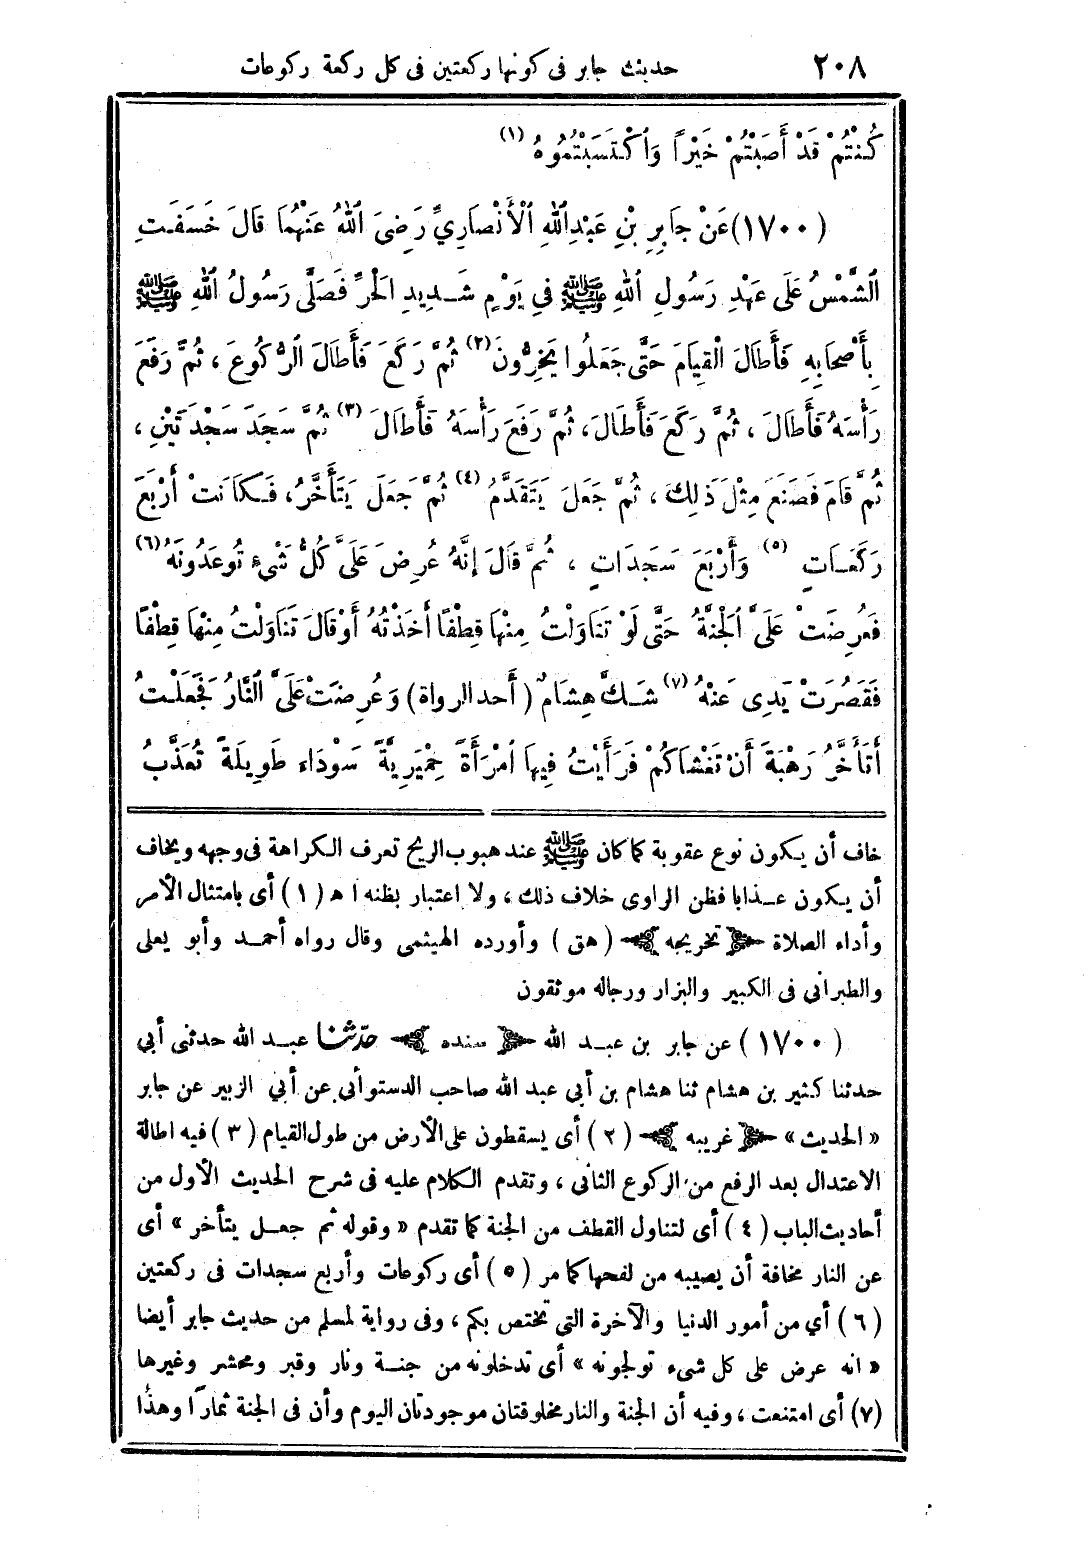 ٢٠٨ حديث جابر فى كونها ركعتين فى كل ركعة ركوعات
كُنْتُمْ قَدْ أَصَبْتُمْ خَيْرًا وَاُكْتَسَبْتُمُوهُ (١)
(١٧٠٠) عَنْ جَابِرِ بْنِ عَبْدِاللهِ اَلْأَنْصَارِيِّ رَضِىَ اللهُ عَنْهُمَا قَالَ خَسَفَتِ
اَلشَّمْسُ عَلَى عَهْدِ رَسُولِ اللهِ ﷺ فِي يَوْمٍ شَدِيدِ الْحَرِّ فَصَلَّى رَسُولُ اللهِ ﷺ
بِأَصْحَابِهِ فَأَطَالَ الْقِيَامَ حَتَّى جَعَلُوا يَخِرُّونَ (٢) ثُمَّ رَكَعَ فَأَطَالَ الرُّكُوعَ ، ثُمَّ رَفَعَ
رَأْسَهُ فَأَطَالَ ، ثُمَّ رَكَعَ فَأَطَالَ، ثُمَّ رَفَعَ رَأْسَهُ فَأَطَالَ (٣) ثُمَّ سَجَدَ سَجْدَتَيْنِ ،
ثُمَّ قَامَ فَصَنَعَ مِثْلَ ذَلِكَ ، ثُمَّ جَعَلَ يَتَقَدَّمُ (٤) ثُمَّ جَعَلَ يَتَأَخَّرُ، فَكَانَتْ أَرْبَعَ
رَكَعَاتٍ (٥) وَأَرْبَعَ سَجَدَاتٍ ، ثُمَّ قَالَ إِنَّهُ عُرِضَ عَلَىَّ كُلُّ شَىْءٍ تُوعَدُونَهُ (٦)
فَعُرِضَتْ عَلَىَّ الْجَنَّةُ حَتَّى لَوْ تَنَاوَلْتُ مِنْهَا قِطْفًا أَخَذْتُهُ أَوْ قَالَ تَنَاوَلْتُ مِنْهَا قِطْفًا
فَقَصُرَتْ يَدِى عَنْهُ (٧) شَكَّ هِشَامٌ (أَحد الرواة) وَعُرِضَتْ عَلَىَّ النَّارُ فَجَعَلْتُ
أَتَأَخَّرُ رَهْبَةً أَنْ تَغْشَاكُمْ فَرَأَيْتُ فِيهَا اُمْرَأَةً حِمْيَرِيَّةً سَوْدَاءَ طَوِيلَةً تُعَذَّبُ
خاف أن يكون نوع عقوبة كما كان ﷺ عند هبوب الريح تعرف الكراهة فى وجهه ويخاف
أن يكون عذابا فظن الراوى خلاف ذلك ، ولا اعتبار بظنه اه (١) أى بامتثال الأمر
وأداء الصلاة ﴿ تخريجه ﴾ (هق) وأورده الهيثمى وقال رواه أحمد وأبو يعلى
والطبراني فى الكبير والبزار ورجاله موثقون
(١٧٠٠) عن جابر بن عبد الله ﴿ سنده ﴾ حدّثنا عبد الله حدثنى أبي
حدثنا كثير بن هشام ثنا هشام بن أبي عبد الله صاحب الدستوأنى عن أبي الزبير عن جابر
« الحديث » ﴿ غريبه ﴾ (٢) أى يسقطون على الأرض من طول القيام (٣) فيه اطالة
الاعتدال بعد الرفع من الركوع الثانى ، وتقدم الكلام عليه فى شرح الحديث الأول من
أحاديث الباب (٤) أى لتناول القطف من الجنة كما تقدم « وقوله ثم جعل يتأخر » أى
عن النار مخافة أن يصيبه من لفحها كما مر (٥) أى ركوعات وأربع سجدات فى ركعتين
(٦) أي من أمور الدنيا والآخرة التي تختص بكم ، وفى رواية لمسلم من حديث جابر أيضا
« انه عرض على كل شىء تولجونه » أى تدخلونه من جنة ونار وقبر ومحشر وغيرها
(٧) أى امتنعت ، وفيه أن الجنة والنار مخلوقتان موجودتان اليوم وأن فى الجنة ثمارًا وهذا